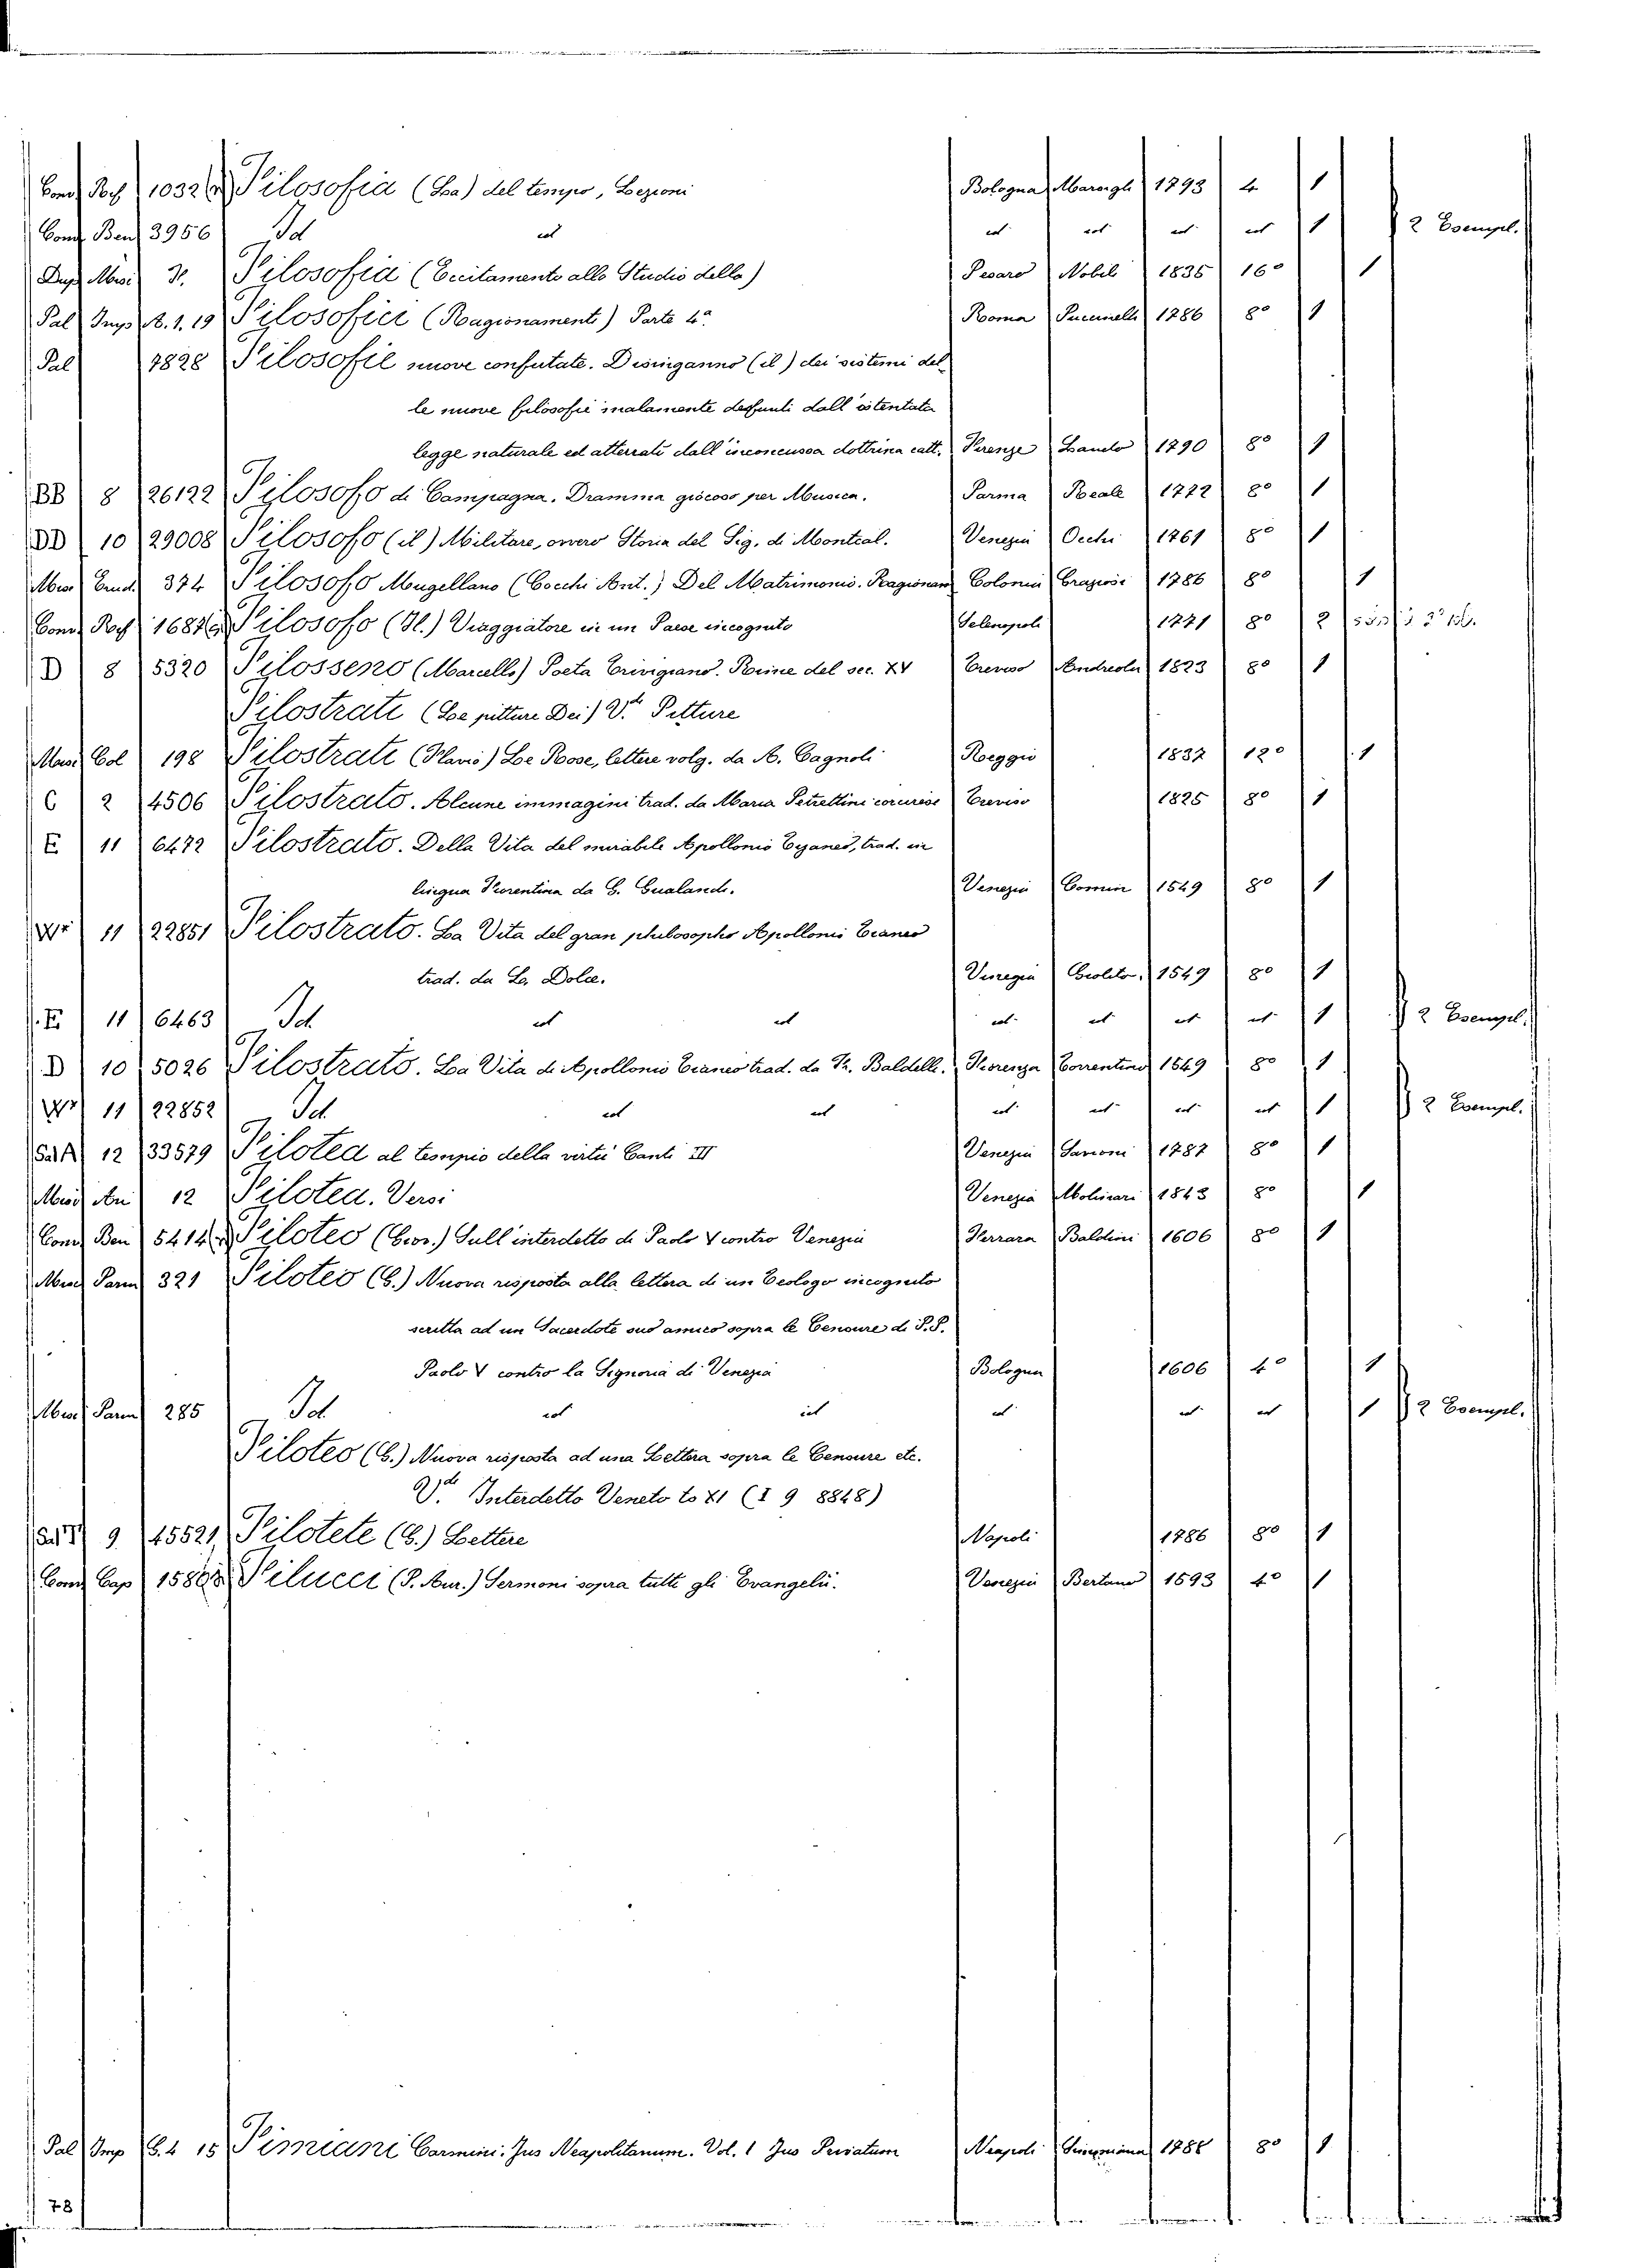 Cond. Roch 1032 Filosofia (La) del tempo, Lezioni Bologna Marsigli 1793 4 1
Cond. Ben 3956 Id id id id id id 1 2 Esempl.
Dup. Misc. Filosofia (Eccitamento allo Studio della) Pesaro Nobili 1835 16° 1
Pal Imp B. 1. 19 Filosofici (Ragionamenti) Parte 4a Roma Puccinelli 1786 8° 1
Pal 7828 Filosofie nuove confutate. Disinganno (il) dei sistemi del-
le nuove filosofie malamente desunti dall'ostentata
legge naturale ed atterrati dall'inconcussa dottrina catt. Firenze 1790 8° 1
BB 8 26122 Filosofo di Campagna. Dramma giocoso per Musica. Parma Reale 1772 8° 1
DD 10 29008 Filosofo (il) Militare, ovvero Storia del Sig. di Montcal. Venezia Occhi 1761 8° 1
Misc. Erud. 374 Filosofo Mugellano (Cocchi Ant.) Del Matrimonio. Ragionam. Colonia Graziosi 1786 8° 1
Cond. Roch 1687 Filosofo (Il) Viaggiatore in un Paese incognito Selenopoli 1771 8° 2
D 8 5320 Filosseno (Marcello) Poeta Trivigiano. Rime del sec. XV Treviso Andreola 1823 8° 1
Filostrati (Le pitture Dei) V. Pitture
Misc. Col 198 Filostrati (Flavio) Le Rose, lettere volg. da A. Cagnoli Reggio 1837 12° 1
C 2 4506 Filostrato. Alcune immagini trad. da Maria Petrettini corcirese Treviso 1825 8° 1
E 11 6472 Filostrato. Della Vita del mirabile Apollonio Tyaneo, trad. in
lingua Fiorentina da G. Gualandi. Venezia Comin 1549 8° 1
11 22851 Filostrato. La Vita del gran philosopho Apollonio Tianeo
trad. da L. Dolce. Venezia Giolito. 1549 8° 1
E 11 6463 Id id id id id id id 1 2 Esempl.
D 10 5026 Filostrato. La Vita di Apollonio Tianeo trad. da Fr. Baldelli. Fiorenza Torrentino 1549 8° 1
11 22852 Id id id id id id id 1 2 Esempl.
12 33579 Filotea al tempio della virtù Canti III Venezia Savioni 1787 8° 1
Misc. 12 Filotea. Versi Venezia Molinari 1843 8° 1
Cond. Ben 5414 Filoteo (Giov.) Sull'interdetto di Paolo V contro Venezia Ferrara Baldini 1606 8° 1
Misc. Parm 321 Filoteo (G.) Nuova risposta alla lettera di un Teologo incognito
scritta ad un Sacerdote suo amico sopra le Censure di P.P.
Paolo V contro la Signoria di Venezia Bologna 1606 4° 1
Misc. Parm 285 Id id id id id id 1 2 Esempl.
Filoteo (G.) Nuova risposta ad una Lettera sopra le Censure etc.
V. Interdetto Veneto to XI (I 9 8848)
9 45521 Filotete (G.) Lettere Napoli 1786 8° 1
Cond. Cap Filucci (P. Aur.) Sermoni sopra tutti gli Evangelii. Venezia Bertano 1593 4° 1
Pal Imp G. 4 15 Fimiani Carmini. Jus Neapolitanum. Vol. 1 Jus Privatum Neapoli 8° 1
78